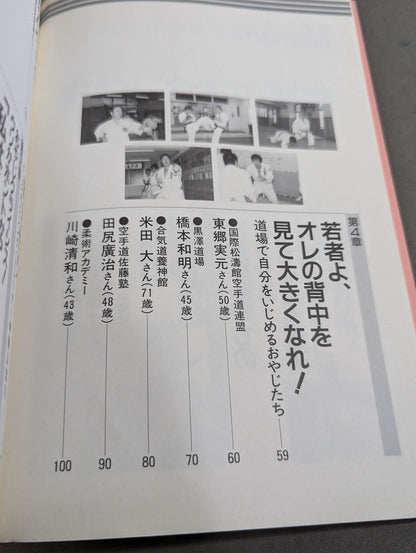 第4章
若者よ、
オレの背中を
見て大きくなれ!
道場で自分をいじめるおやじたち 59
●国際松濤館空手道連盟
東郷実元さん(50歳) 60
●黒澤道場
橋本和明さん(45歳) 70
●合気道養神館
米田 大さん(71歳) 80
●空手道佐藤塾
田尻廣治さん(48歳) 90
●柔術アカデミー
川崎清和さん(43歳) 100